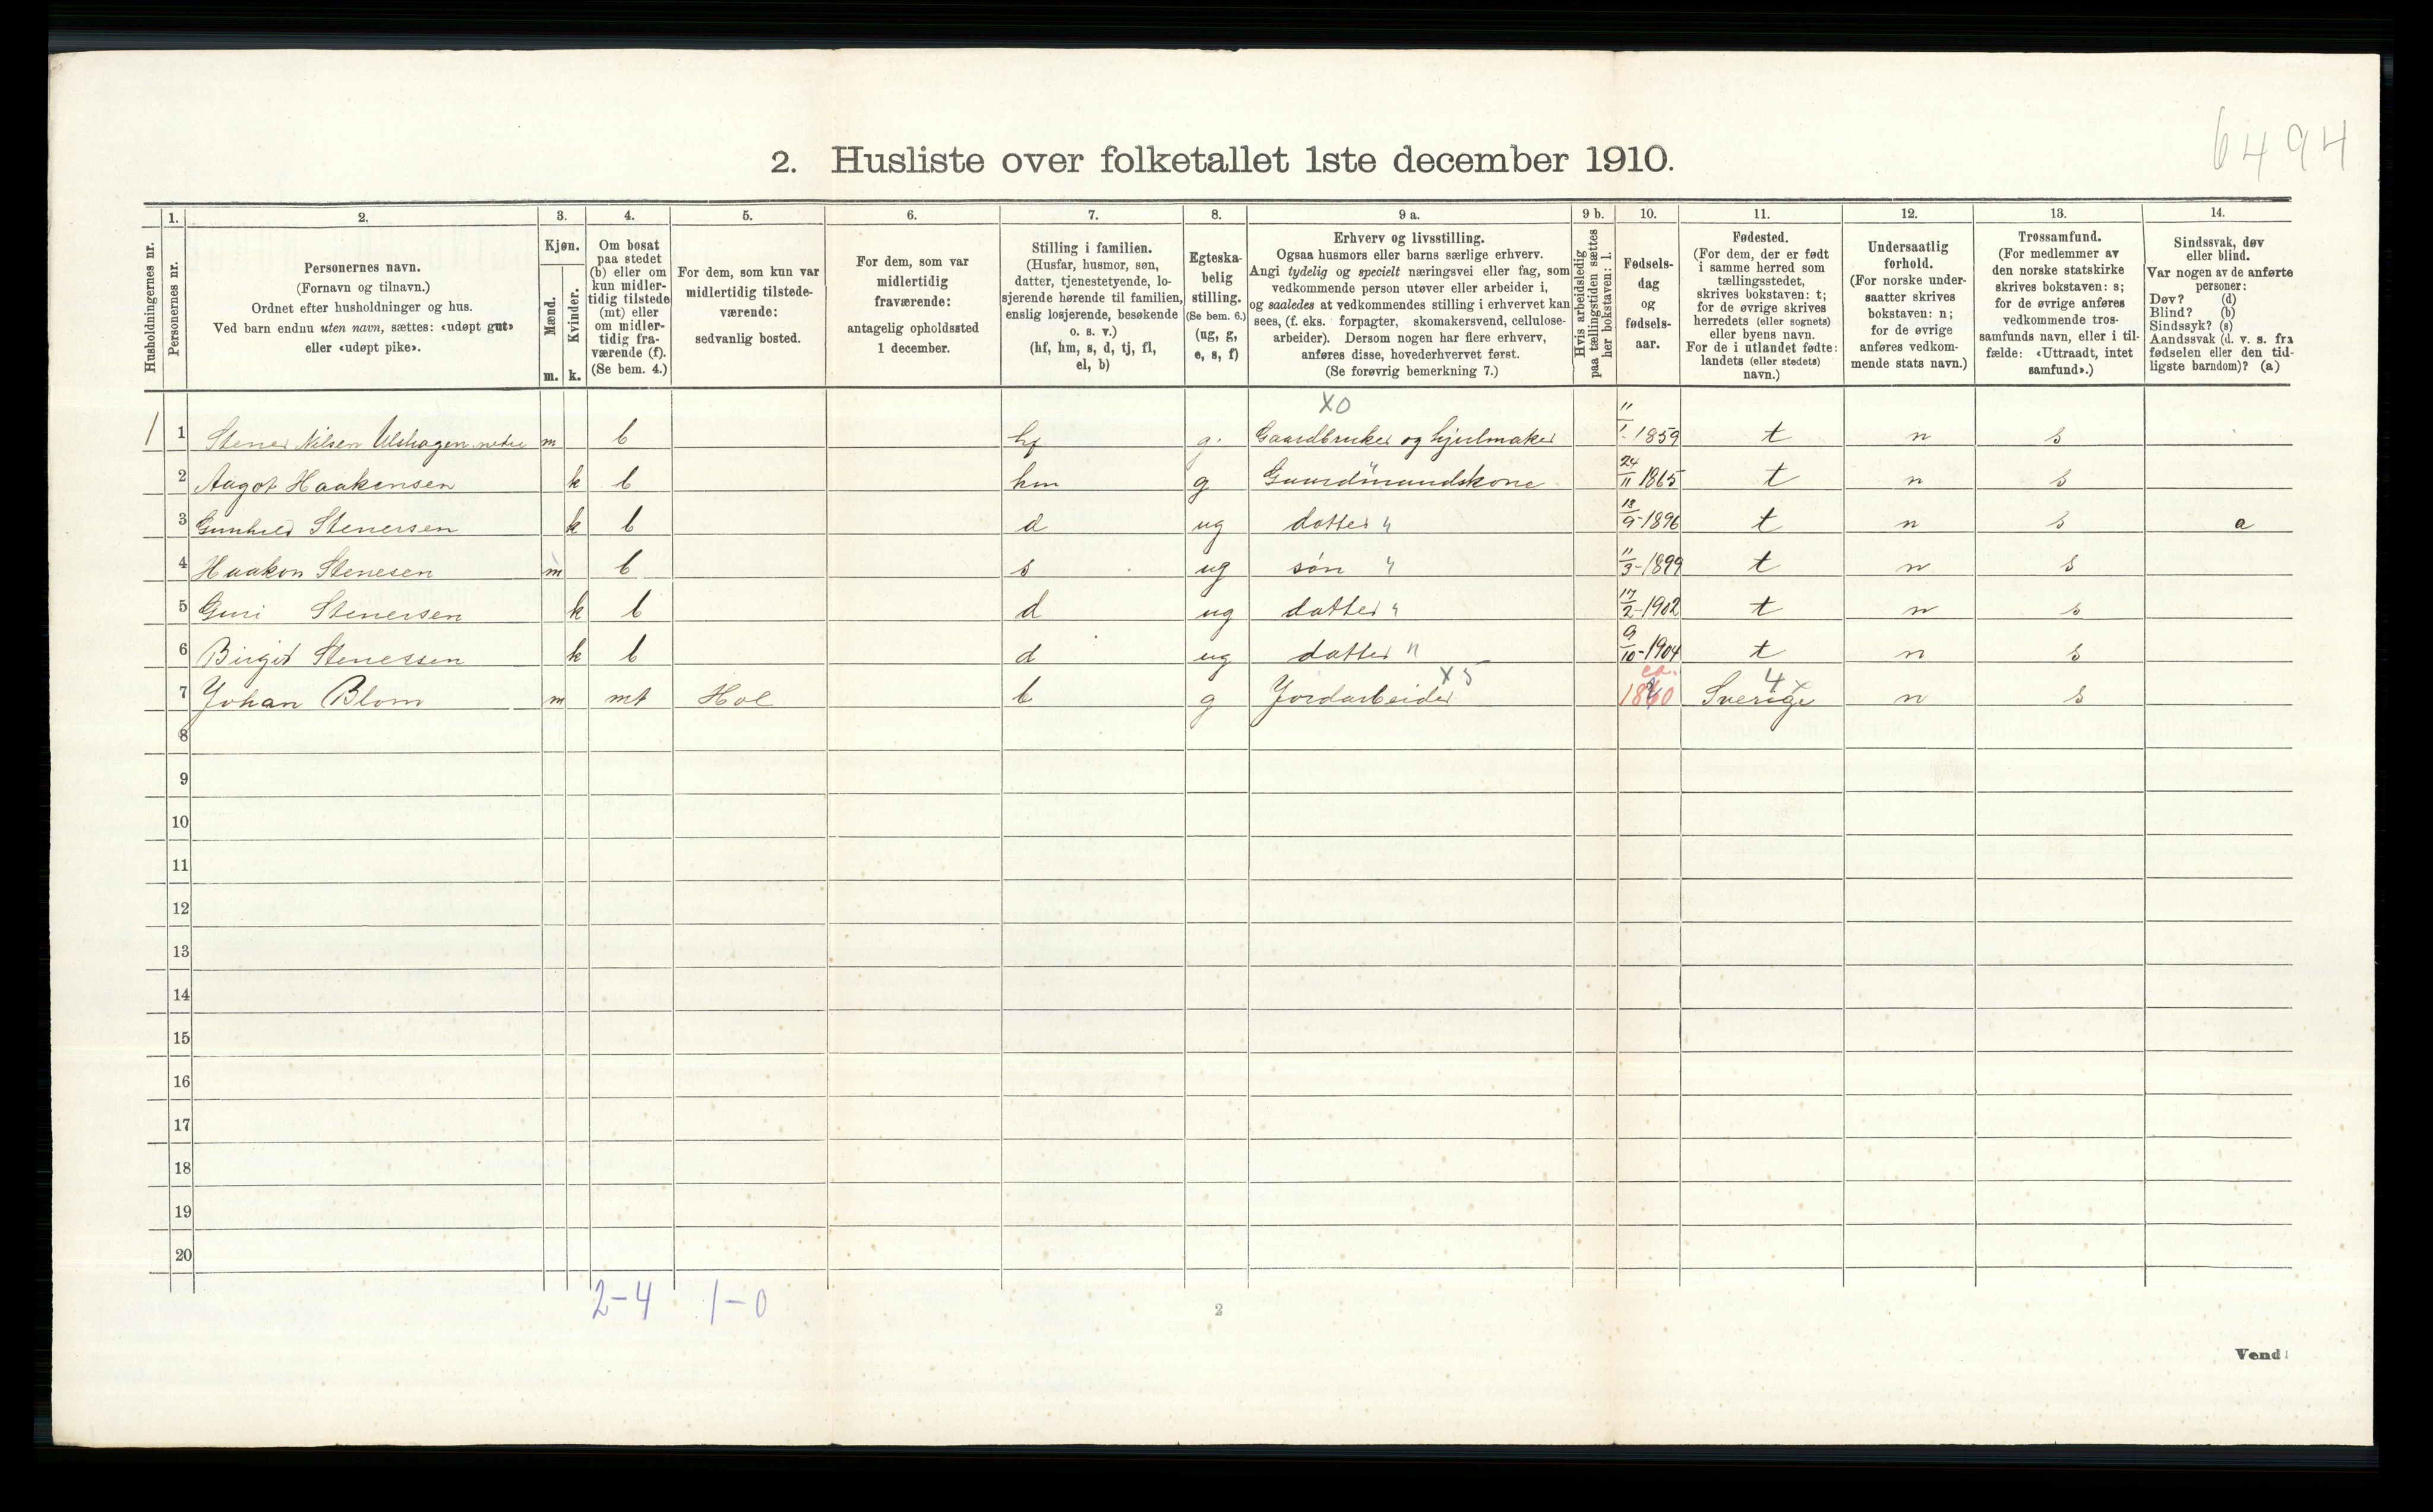 6494
2. Husliste over folketallet 1ste december 1910.
1. 2. 3. 4. 5. 6. 7. 8. 9 a. 9 b. 10. 11. 12. 13. 14.
Husholdningernes nr.
Personernes nr.
Personernes navn.
(Fornavn og tilnavn.)
Ordnet efter husholdninger og hus.
Ved barn endnu uten navn, sættes: «udøpt gut»
eller «udøpt pike».
Kjøn.
Mænd.
Kvinder.
m. k.
Om bosat
paa stedet
(b) eller om
kun midler-
tidig tilstede
(mt) eller
om midler-
tidig fra-
værende (f).
(Se bem. 4.)
For dem, som kun var
midlertidig tilstede-
værende:
sedvanlig bosted.
For dem, som var
midlertidig
fraværende:
antagelig opholdssted
1 december.
Stilling i familien.
(Husfar, husmor, søn,
datter, tjenestetyende, lo-
sjerende hørende til familien,
enslig losjerende, besøkende
o. s. v.)
(hf, hm, s, d, tj, fl,
el, b)
Egteska-
belig
stilling.
(Se bem. 6.)
(ug, g,
e, s, f)
Erhverv og livsstilling.
Ogsaa husmors eller barns særlige erhverv.
Angi tydelig og specielt næringsvei eller fag, som
vedkommende person utøver eller arbeider i,
og saaledes at vedkommendes stilling i erhvervet kan
sees, (f. eks. forpagter, skomakersvend, cellulose-
arbeider). Dersom nogen har flere erhverv,
anføres disse, hovederhvervet først.
(Se forøvrig bemerkning 7.)
Hvis arbeidsledig
paa tællingstiden sættes
her bokstaven: l.
Fødsels-
dag
og
fødsels-
aar.
Fødested.
(For dem, der er født
i samme herred som
tællingsstedet,
skrives bokstaven: t;
for de øvrige skrives
herredets (eller sognets)
eller byens navn.
For de i utlandet fødte:
landets (eller stedets)
navn.)
Undersaatlig
forhold.
(For norske under-
saatter skrives
bokstaven: n;
for de øvrige
anføres vedkom-
mende stats navn.)
Trossamfund.
(For medlemmer av
den norske statskirke
skrives bokstaven: s;
for de øvrige anføres
vedkommende tros-
samfunds navn, eller i til-
fælde: «Uttraadt, intet
samfund».)
Sindssvak, døv
eller blind.
Var nogen av de anførte
personer:
Døv? (d)
Blind? (b)
Sindssyk? (s)
Aandssvak (d. v. s. fra
fødselen eller den tid-
ligste barndom)? (a)
X0
1 1 Stener Nilsen Ulshagen nedre m b hf g. Gaardbruker og hjulmaker 11/1-1859 t n s
2 Aagot Haakensen k b hm g Gaardmandskone 24/11 1865 t n s
3 Gunhild Stenersen k b d ug datter " 13/9-1896 t n s a
4 Haakon Stenesen m b s ug søn " 11/3-1899 t n s
5 Guri Stenersen k b d ug datter " 17/2-1902 t n s
6 Birgit Stenersen k b d ug datter " 9/10-1904 t n s
X5 ca. 4 x
7 Johan Blom m mt Hol b g Jordarbeider 1860 Sverige n s
8
9
10
11
12
13
14
15
16
17
18
19
20
2-4 1-0
2
Vend!